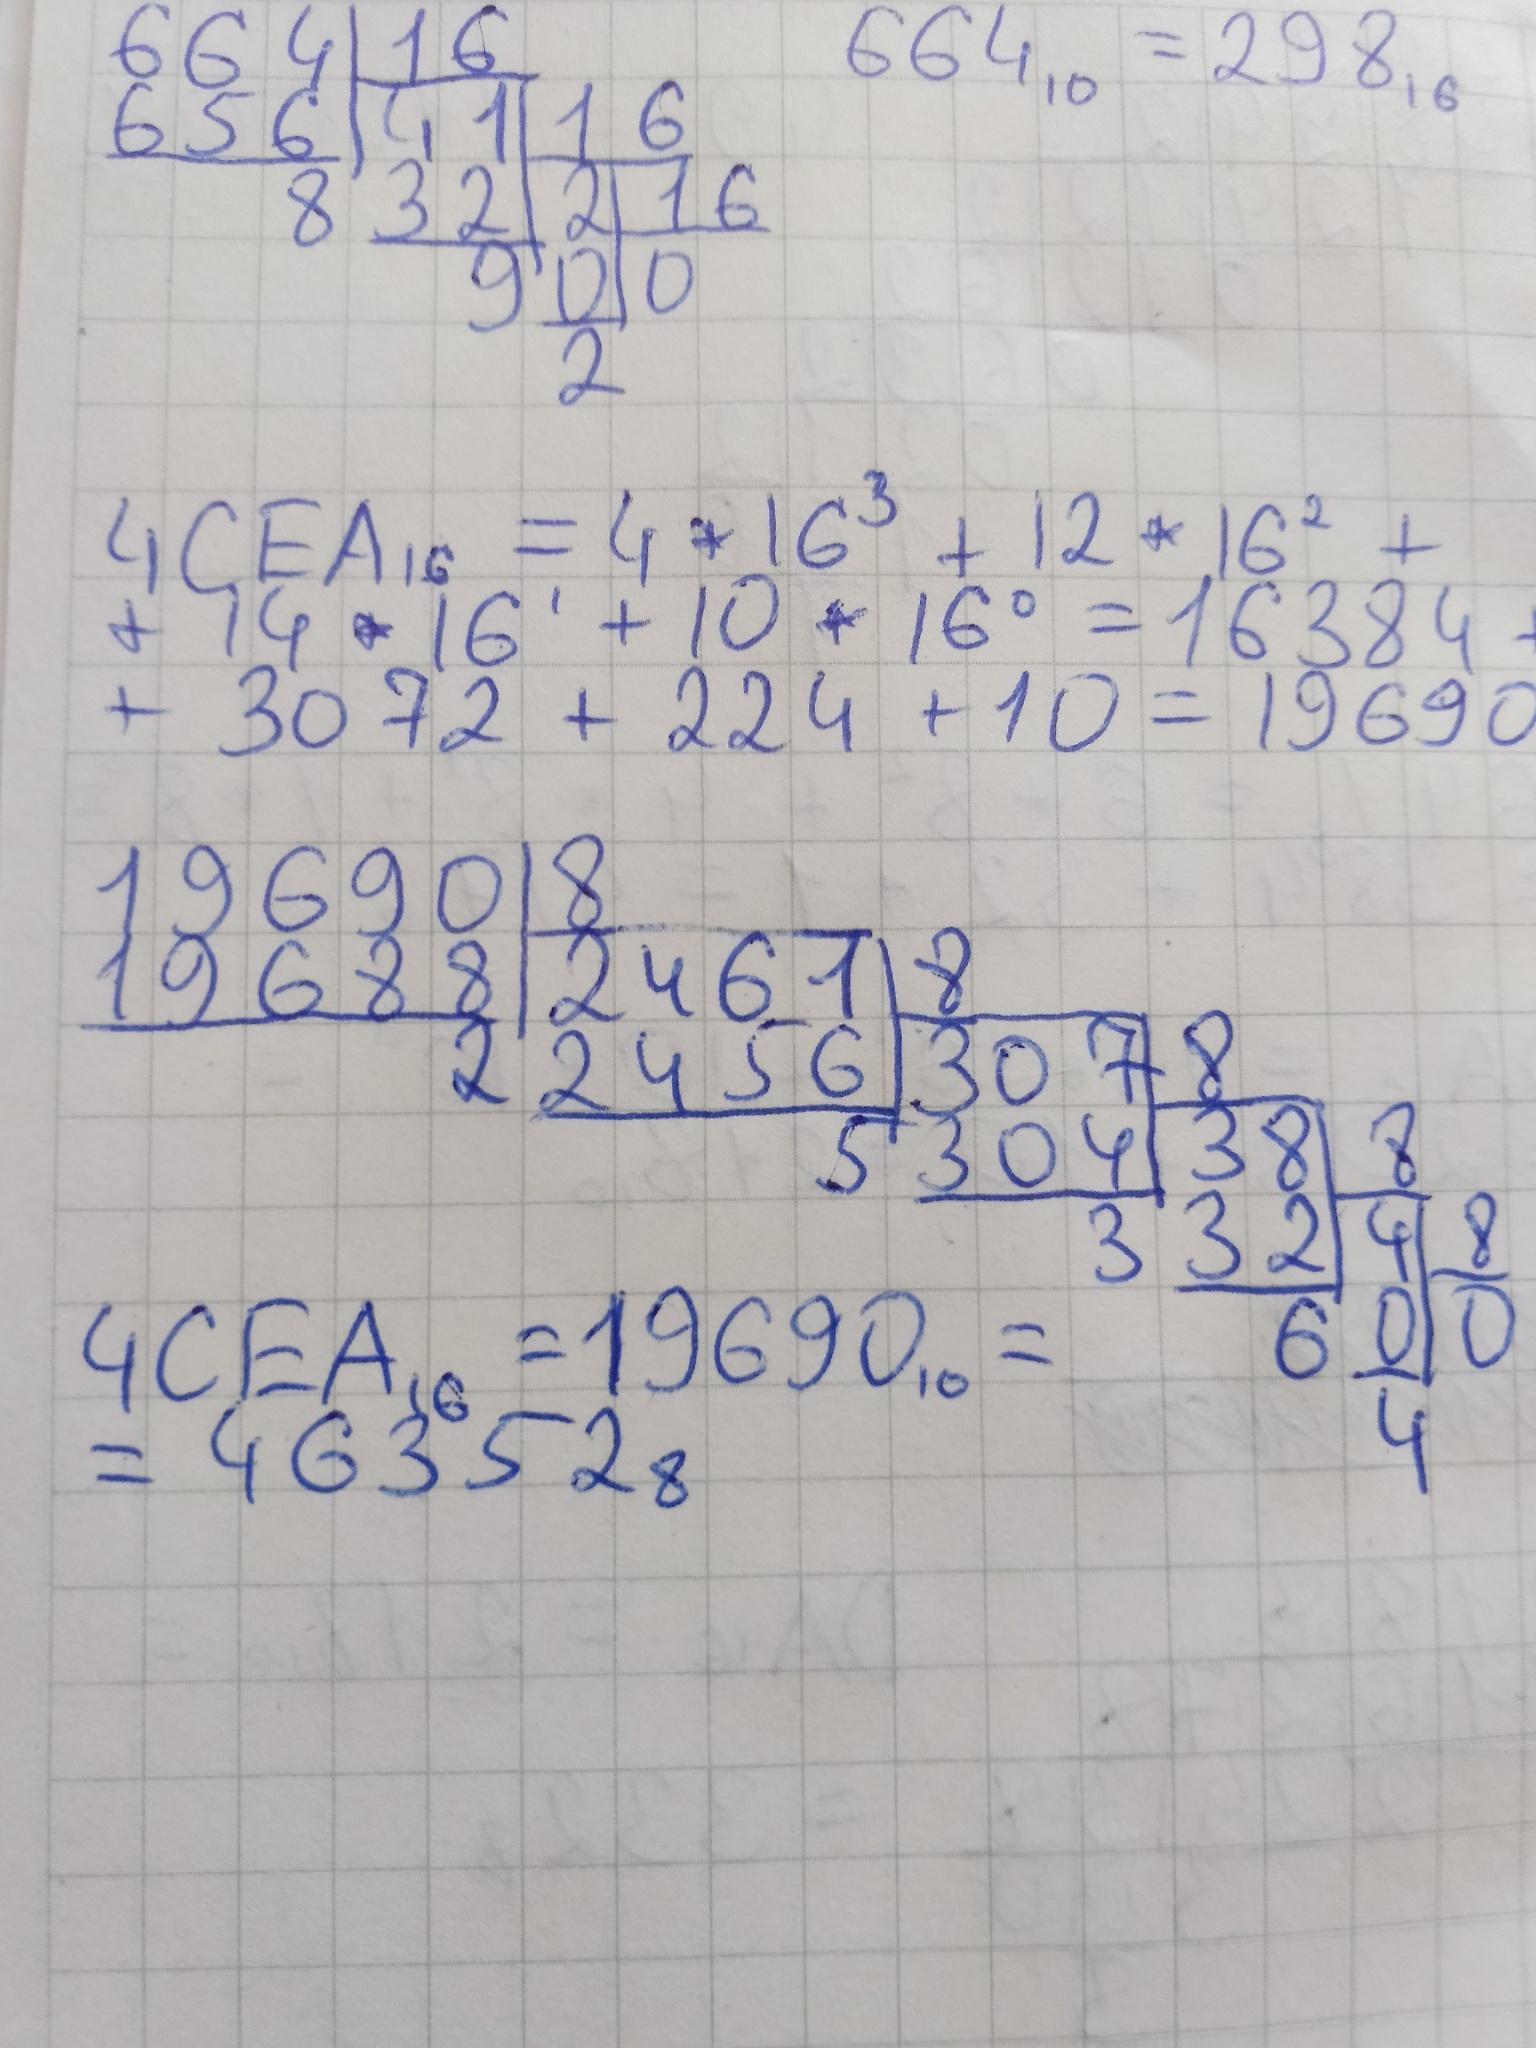 664 16 664₁₀ = 298₁₆
656 41 16
8 32 2 16
9 0 0
2
4CEA₁₆ = 4 * 16³ + 12 * 16² +
+ 14 * 16¹ + 10 * 16⁰ = 16384 +
+ 3072 + 224 + 10 = 19690
19690 8
19688 2461 8
2 2456 307 8
5 304 38 8
3 32 4 8
6 0 0
4
4CEA₁₆ = 19690₁₀ =
= 46352₈